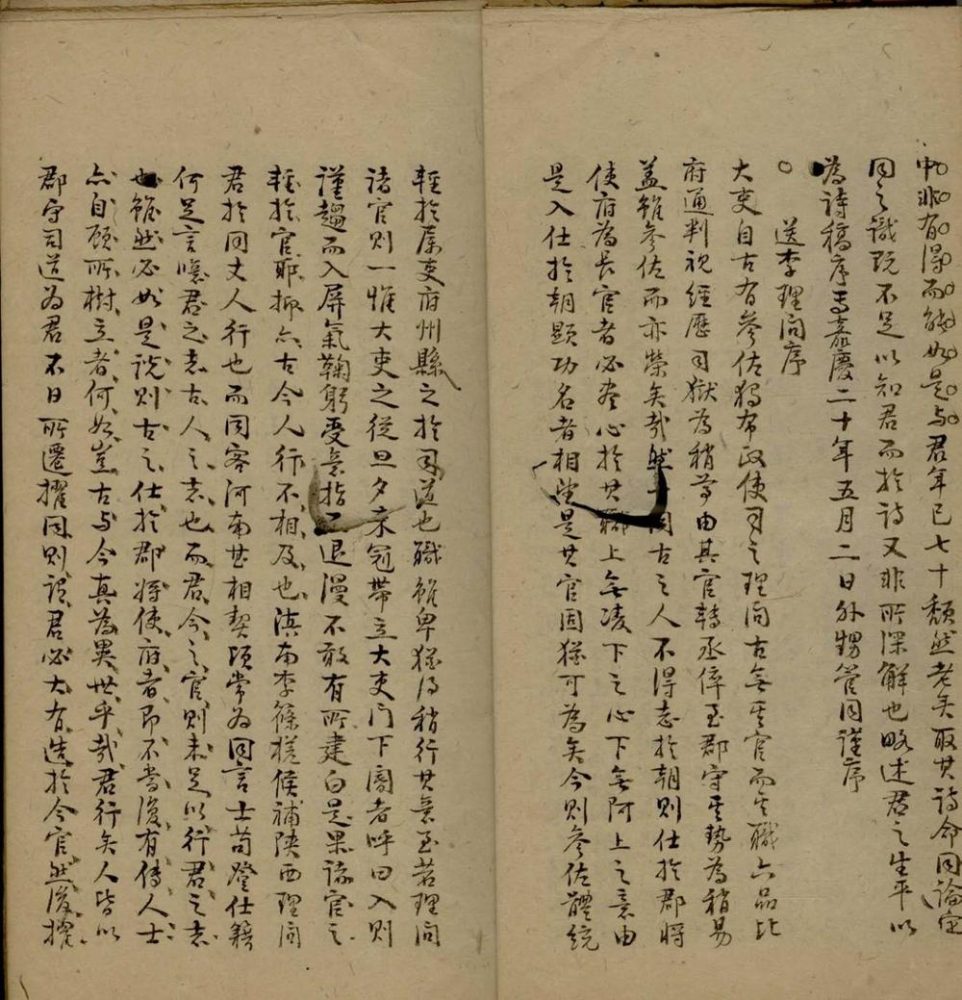 中非有得而能如是与君年已七十頽然老矣取其詩命同論定
同之識既不足以知君而於詩又非所深解也略述君之生平以
為詩稿序時嘉慶二十年五月二日外甥管同謹序
○ 送李理問序
大吏自古有參佐獨布政使司之理問古無其官而其職六品比
府通判視經歷司獄為稍尊由其官轉丞倅至郡守其勢為稍易
蓋雖參佐而亦榮矣哉然同古之人不得志於朝則仕於郡將
使府為長官者必盡心於其職上無凌下之心下無阿上之意由
是入仕於朝顯功名者相望是其官固猶可為矣今則參佐體統
輕於屬吏府州縣之於司道也職雖卑猶得稍行其意至若理問
諸官則一惟大吏之從旦夕束冠帶立大吏門下閽者呼曰入則
謹趨而入屏氣鞠躬受意指而退漫不敢有所建白是果諸官之
輕於官耶抑亦古今人行不相及也滇南李篠槎候補陝西理問
君於同丈人行也而同客河南甚相契頃常為同言士苟登仕籍
何足言懷君之志古人之志也而君今之官則未足以行君之志
也雖然必如是說則古之仕於郡將使府者即不當復有傳人士
亦自顧所樹立者何如豈古与今真為異世乎哉君行矣人皆以
郡守司道為君不日所遷擢同則謂君必大有造於今官然後擢